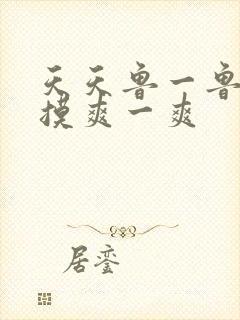 天天鲁一鲁
摸爽一爽
居銮